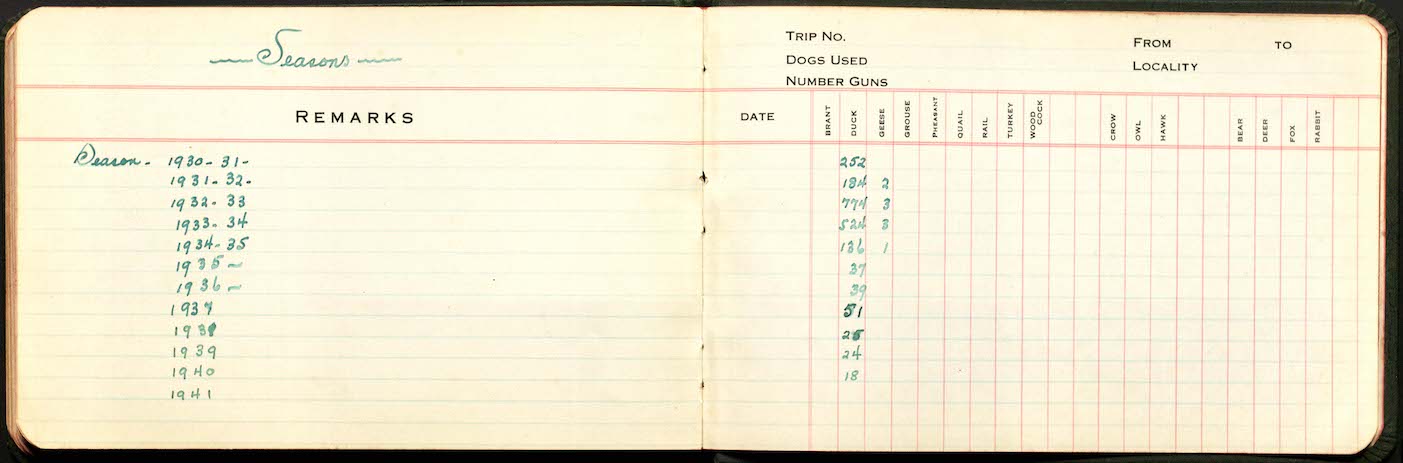 Seasons
REMARKS
Season - 1930 - 31 -
1931 - 32 -
1932 - 33
1933 - 34
1934 - 35
1935 ~
1936 ~
1937
1938
1939
1940
1941
TRIP NO. FROM TO
DOGS USED LOCALITY
NUMBER GUNS
DATE BRANT DUCK GEESE GROUSE PHEASANT QUAIL RAIL TURKEY WOOD COCK CROW OWL HAWK BEAR DEER FOX RABBIT
252
184 2
774 3
524 3
136 1
37
39
51
24
18